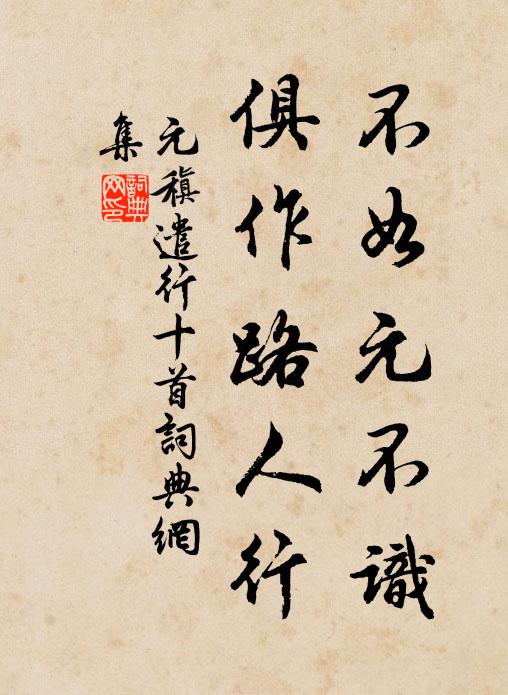 不如元不識
俱作路人行
元稹遣行十首詞典網
集
詞典
网印